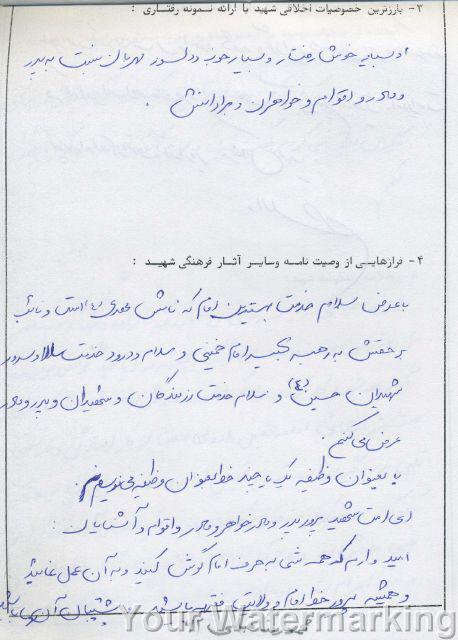 ۳- بارزترین خصوصیات اخلاقی شهید با ارائه نمونه رفتاری :
او بسیار خوش رفتار و بسیار خوب و دلسوز و مهربان نسبت به پدر
و مادر و اقوام و خواهران و برادرانش .
۴- فرازهایی از وصیت نامه وسایر آثار فرهنگی شهید :
با عرض سلام خدمت بهترین امام که نامش مهدی (ع) است و نائب
بر حقش به رهبر کبیر امام خمینی و سلام و درود خدمت سالار و سرور
شهیدان حسین (ع) و سلام خدمت رزمندگان و شهیدان و پدر و مادر
عرض می کنم .
با بعنوان وظیفه یک یا چند خط بعنوان وظیفه می نویسم .
ای امت شهید پرور پدر و مادر خواهر و مادر و اقوام و آشنایان :
امید وارم که همه شما به حرف امام گوش کنید و به آن عمل نمائید
و همیشه پیرو خط امام و ولایت فقیه باشید و پشتیبان آن باشید
Your Watermarking